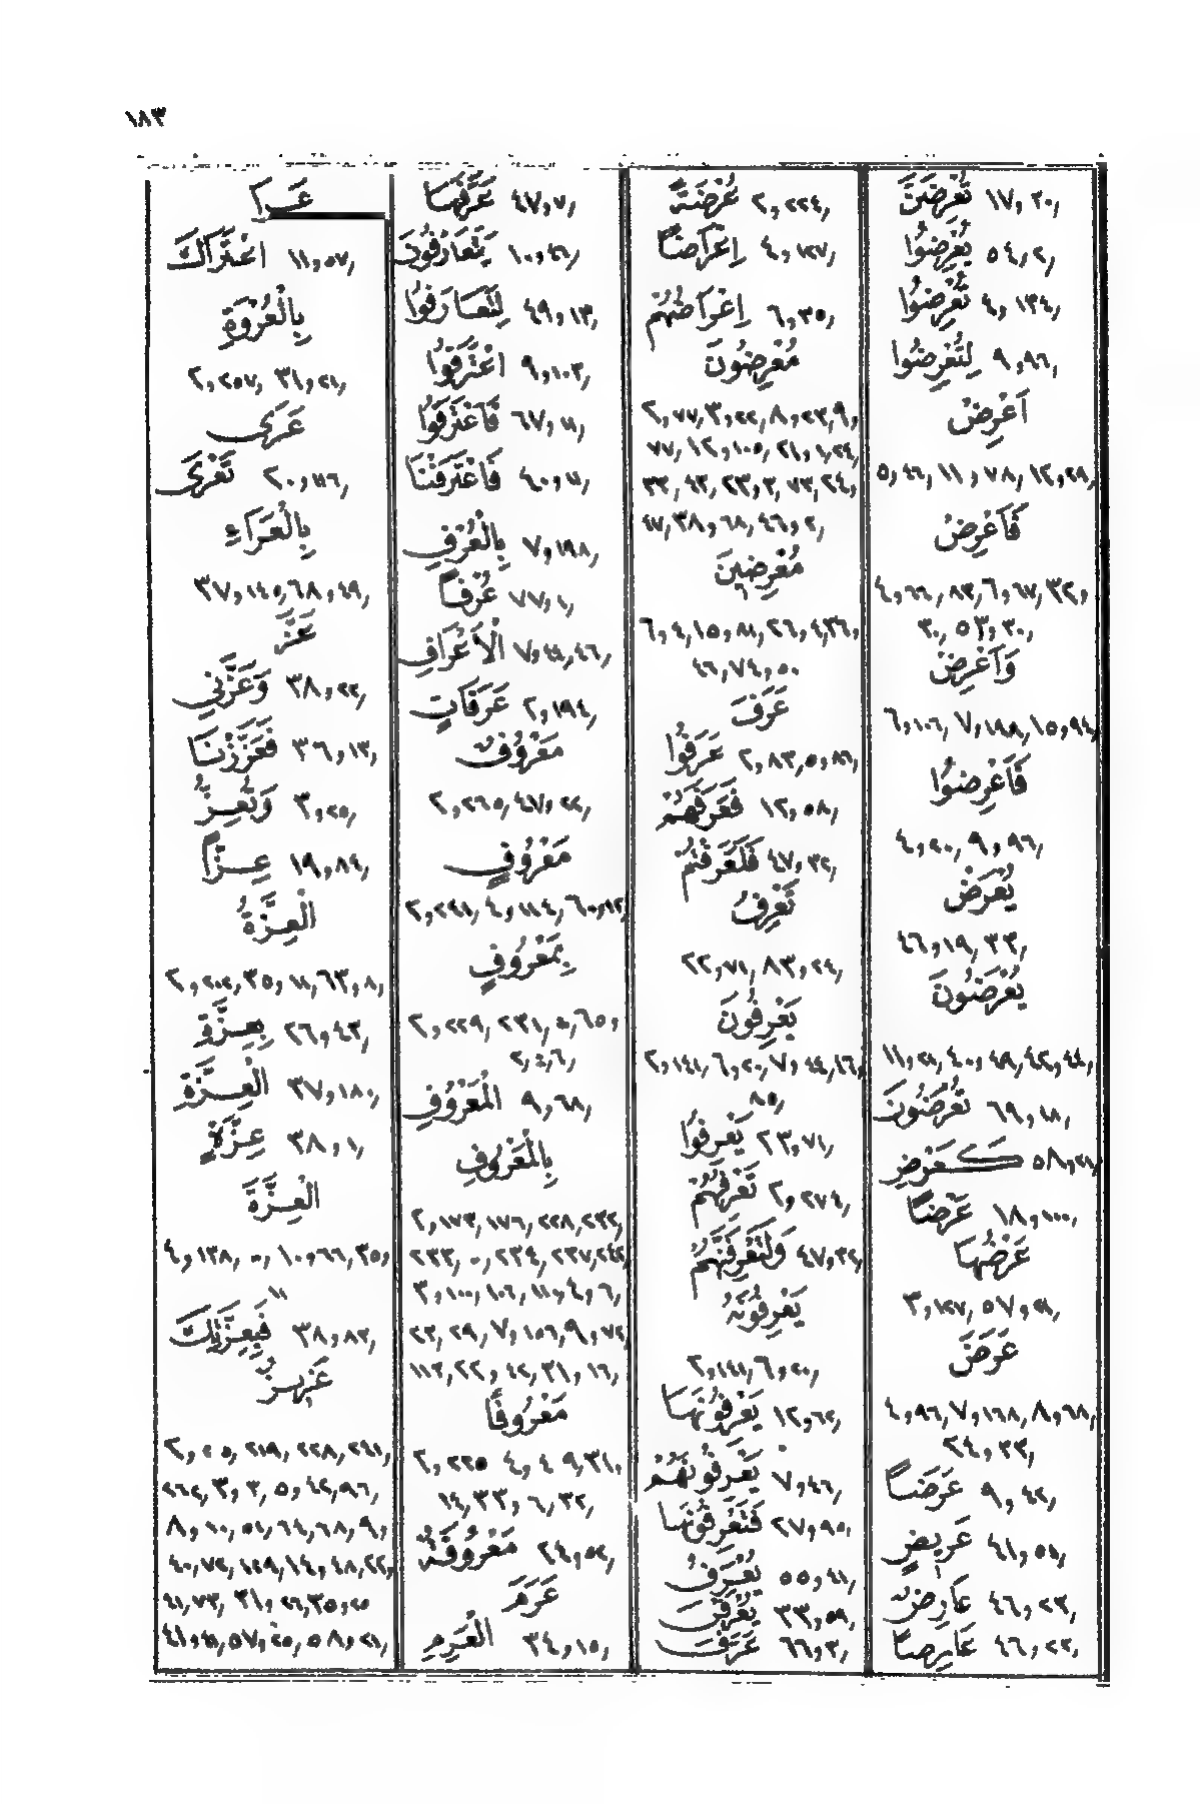 ١٨٣
تُعْرِضَنَّ ١٧, ٣٠,
يُعْرِضُوا ٥٤, ٢,
تُعْرِضُوا ٤, ١٣٤,
لِتُعْرِضُوا ٩, ٩٦,
اَعْرِضْ
٥, ٤٤, ١١, ٧٨, ١٢, ٢٩,
فَاَعْرِضْ
٣٠, ٥٣, ٣٠,
وَاَعْرِضْ
٦, ١٠٦, ٧, ١٩٨, ١٥, ٩٤,
فَاَعْرِضُوا
٤, ٢٠, ٩, ٩٦,
يُعْرَضُ
٤٦, ١٩, ٣٣,
يُعْرَضُونَ
تُعْرَضُونَ ٦٩, ١٨,
كَعَرْضِ ٥٨, ٢١,
عَرْضًا ١٨, ١٠٠,
عَرْضُهَا
٣, ١٢٧, ٥٧, ٢١,
عَرَضَ
٤, ٩٦, ٧, ١٦٨, ٨, ٦٨,
٢٤, ٣٣,
عَرَضًا ٩, ٤٢,
عَرِيضٍ ٤١, ٥١,
عَارِضٌ ٤٦, ٢٣,
عَارِضًا ٤٦, ٢٣,
عُرْضَةً ٢, ٢٢٤,
اِعْرَاضًا ٤, ١٢٧,
اِعْرَاضُهُمْ ٦, ٣٥,
مُعْرِضُونَ
٤٧, ٣٨, ٦٨, ٤٦, ٢,
مُعْرِضِينَ
٤٦, ٧٤, ٥٠
عَرَفَ
عَرَفُوا ٢, ٨٣, ٥, ٨٦,
فَعَرَفَهُمْ ١٢, ٥٨,
فَلَعَرَفْتَهُمْ ٤٧, ٣٢,
تَعْرِفُ
٢٢, ٧١, ٨٣, ٢٤,
يَعْرِفُونَ
٨٥,
يَعْرِفُوا ٢٣, ٧١,
تَعْرِفُهُمْ ٢, ٢٧٤,
وَلَتَعْرِفَنَّهُمْ ٤٧, ٣٢,
يَعْرِفُونَهُ
٢, ١٤١, ٦, ٢٠,
يَعْرِفُونَهَا ١٢, ٦٢,
يَعْرِفُونَهُمْ ٧, ٤٦,
فَتَعْرِفُونَهَا ٢٧, ٩٥,
يُعْرَفُ ٥٥, ٤١,
يُعْرَفْنَ ٣٣, ٥٩,
عَرَّفَ ٦٦, ٣,
عَرَّفَهَا ٤٧, ٧,
يَتَعَارَفُونَ ١٠, ٤٦,
لِتَعَارَفُوا ٤٩, ١٣,
اعْتَرَفُوا ٩, ١٠٣,
فَاعْتَرَفُوا ٦٧, ١١,
فَاعْتَرَفْنَا ٤٠, ١١,
بِالْعُرْفِ ٧, ١٩٨,
عُرْفًا ٧٧, ١,
الْاَعْرَافِ ٧, ٤٤, ٤٦,
عَرَفَاتٍ ٢, ١٩٤,
مَعْرُوفٌ
٢, ٢٦٥, ٤٧, ٢٢,
مَعْرُوفٍ
٢, ٢٤١, ٤, ١١٤, ٦٠, ١٢,
بِمَعْرُوفٍ
٢, ٢٢٩, ٢٣١, ٥, ٦٥,
٢, ٤, ٦,
الْمَعْرُوفِ ٩, ٦٨,
بِالْمَعْرُوفِ
٢, ١٧٣, ١٧٦, ٢٢٨, ٢٣٢,
٣, ١٠٠, ١٠٦, ١١, ٤, ٦,
٢٣, ٢٩, ٧, ١٥٦, ٩, ٧٢,
١١٣, ٢٢, ٤٢, ٣١, ١٦,
مَعْرُوفًا
١٤, ٣٣, ٦, ٣٢,
مَعْرُوفَةٌ ٢٤, ٥٢,
عَرَمَ
الْعَرِمِ ٣٤, ١٥,
عَرَا
اعْتَرَاكَ ١١, ٥٧,
بِالْعُرْوَةِ
٢, ٢٥٧, ٣١, ٢١,
عَرَى
تَعْرَى ٢٠, ١١٦,
بِالْعَرَاءِ
٣٧, ١٤٥, ٦٨, ٤٩,
عَزَّ
وَعَزَّنِي ٣٨, ٢٢,
فَعَزَّزْنَا ٣٦, ١٣,
وَتُعِزُّ ٣, ٢٥,
عِزًّا ١٩, ٨٤,
الْعِزَّةُ
٢, ٢٠٢, ٣٥, ١١, ٦٣, ٨,
بِعِزَّةِ ٢٦, ٤٣,
الْعِزَّةِ ٣٧, ١٨٠,
عِزَّةٍ ٣٨, ١,
الْعِزَّةَ
١١
فَبِعِزَّتِكَ ٣٨, ٨٣,
عَزِيزٌ
٨, ١٠, ٥١, ٦٤, ٦٨, ٩,